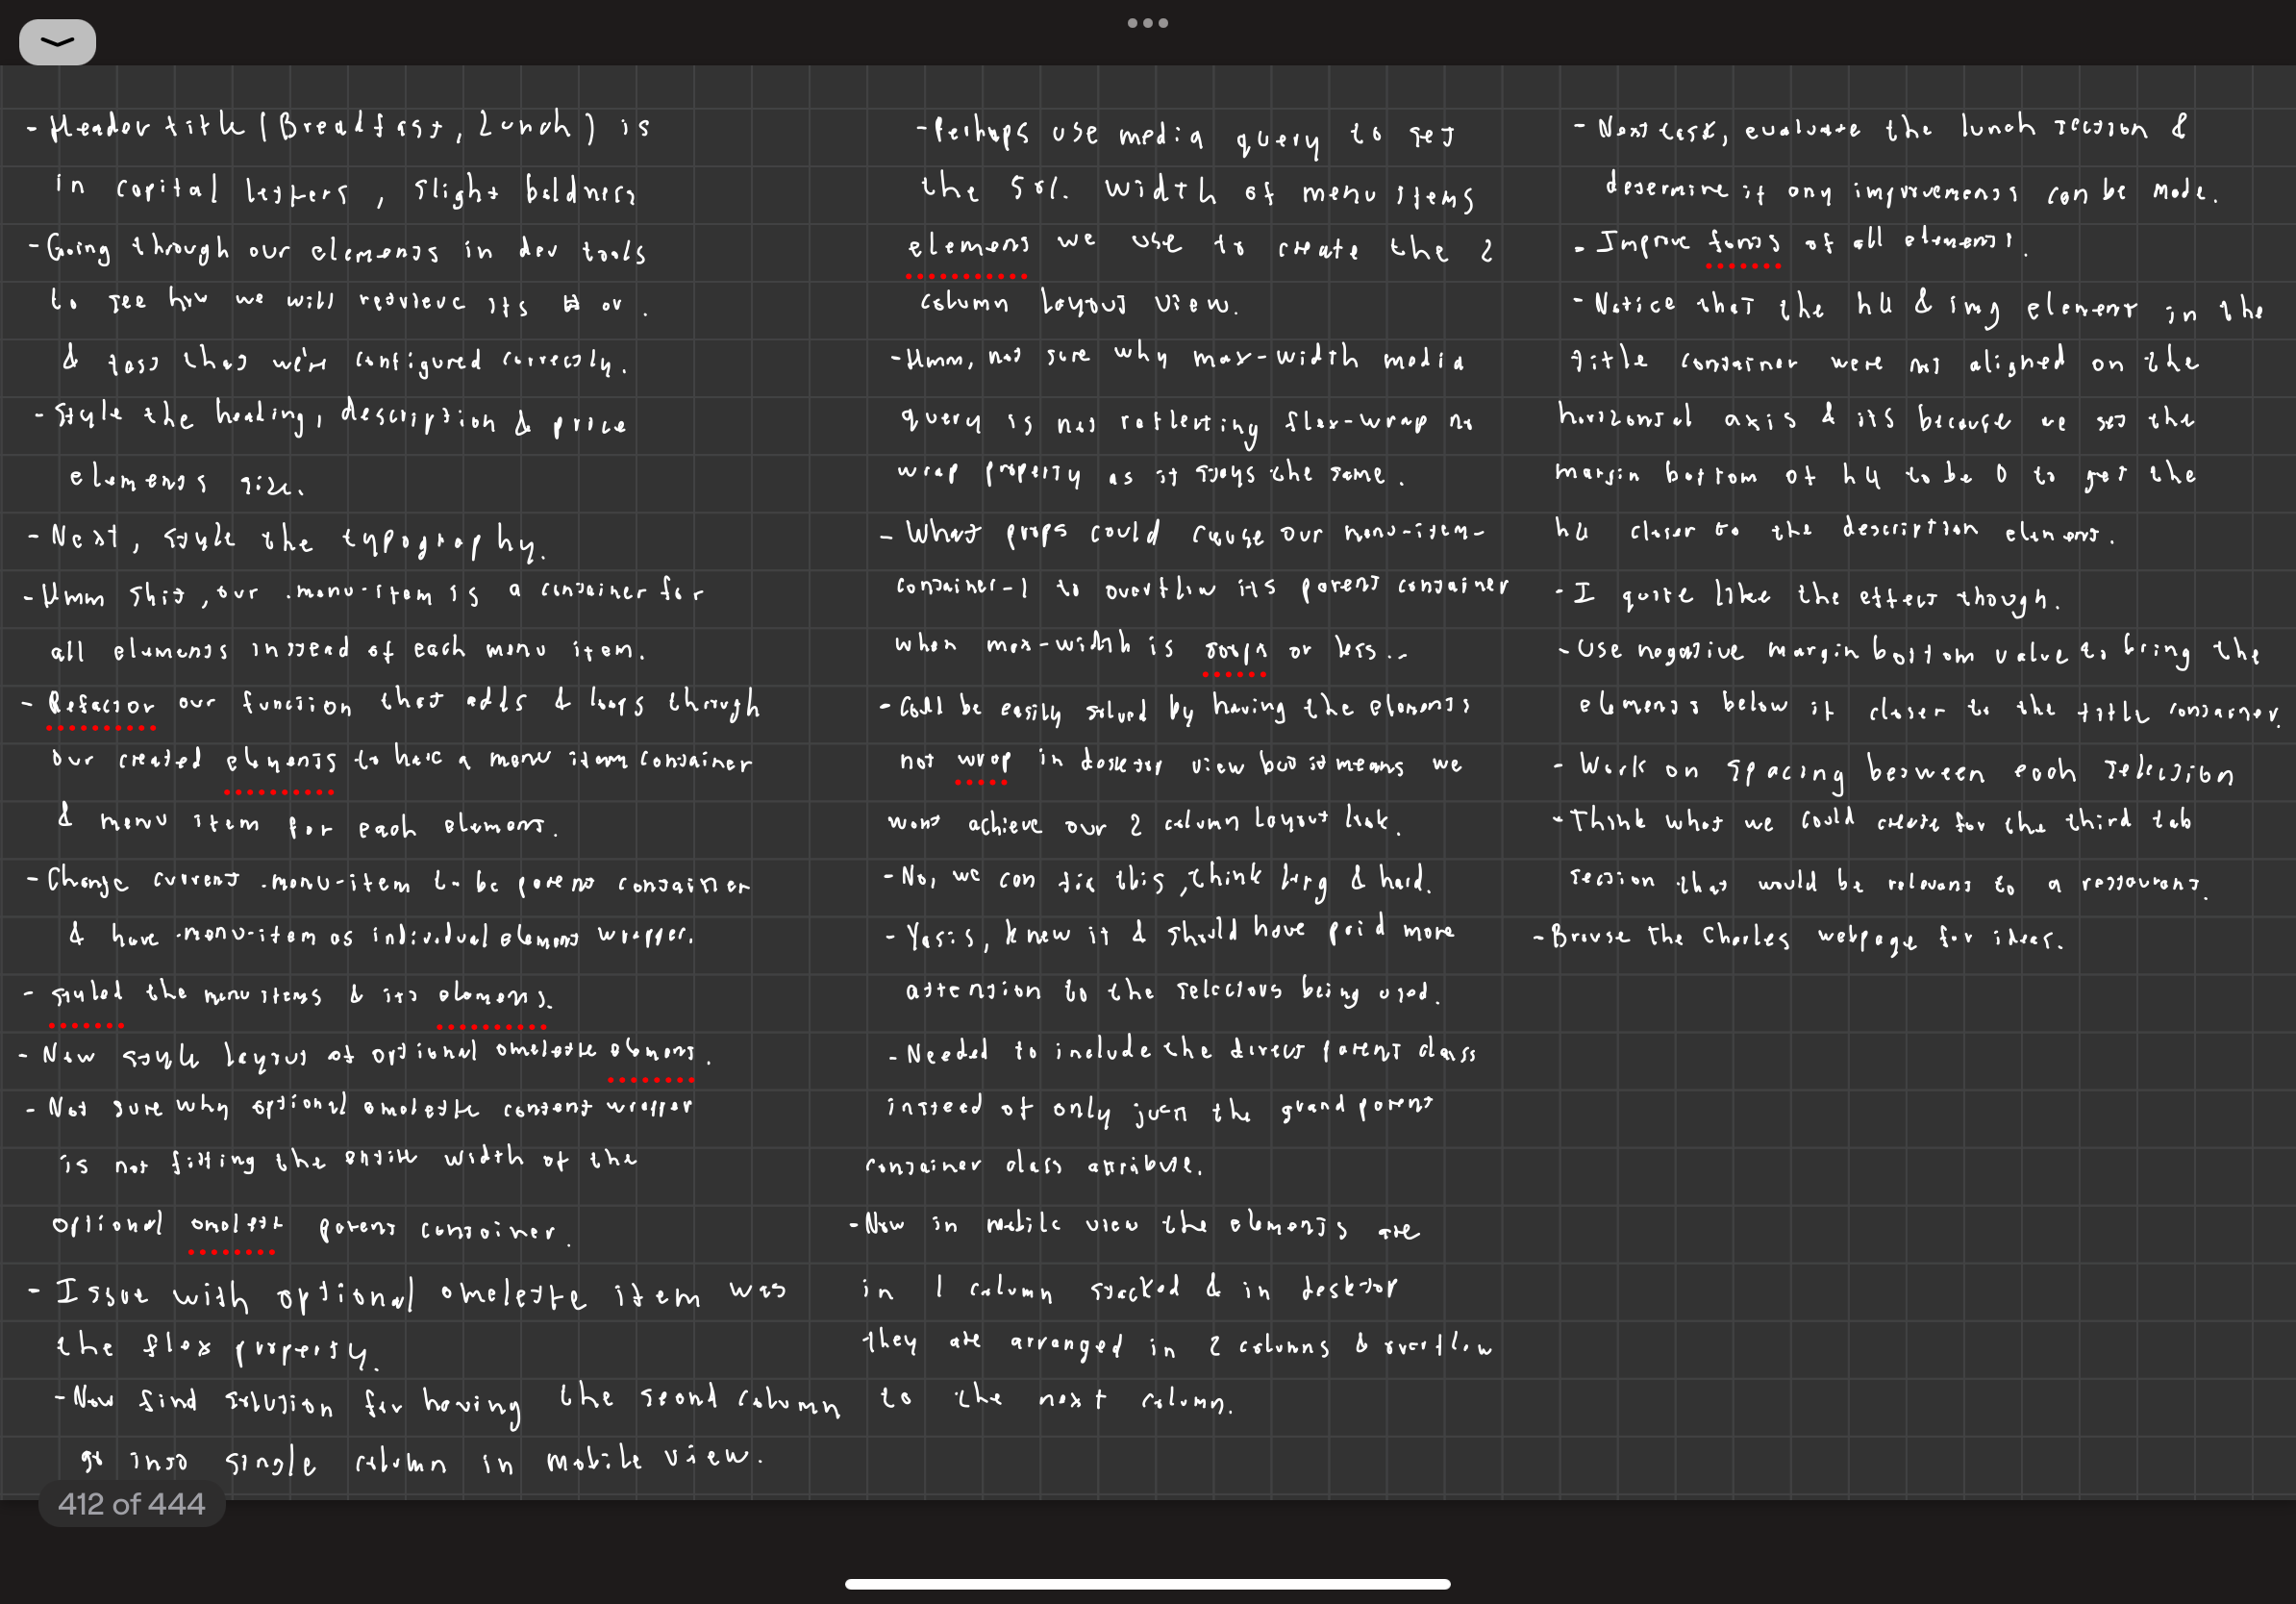 - Header title (Breakfast, Lunch) is
in capital letters, slight boldness
- Going through our elements in dev tools
to see how we will retrieve its or.
& test that we're configured correctly.
- Style the heading, description & price
elements size.
- Next, style the typography.
- Hmm shit, our .menu-item is a container for
all elements instead of each menu item.
- Refactor our function that adds & loops through
our created elements to have a menu item container
& menu item for each element.
- Change current .menu-item to be parent container
& have .menu-item as individual element wrapper.
- Styled the menu items & its elements.
- Now style layout of optional omelette element.
- Not sure why optional omelette content wrapper
is not fitting the entire width of the
optional omelette parent container.
- Issue with optional omelette item was
the flex property.
- Now find solution for having the second column
go into single column in mobile view.
- Perhaps use media query to set
the 50%. width of menu items
elements we use to create the 2
column layout view.
- Hmm, not sure why max-width media
query is not reflecting flex-wrap no
wrap property as it stays the same.
- What props could cause our menu-item-
container-1 to overflow its parent container
when max-width is or less..
- Could be easily solved by having the elements
not wrap in desktop view but it means we
wont achieve our 2 column layout look.
- No, we can fix this, think long & hard.
- Yasis, knew it & should have paid more
attention to the selectors being used.
- Needed to include the direct parent class
instead of only just the grand parent
container class attribute.
- Now in mobile view the elements are
in 1 column stacked & in desktop
they are arranged in 2 columns & overflow
to the next column.
- Next task, evaluate the lunch section &
determine if any improvements can be made.
- Improve fonts of all elements.
- Notice that the h4 & img element in the
title container were not aligned on the
horizontal axis & its because we set the
margin bottom of h4 to be 0 to get the
h4 closer to the description element.
- I quite like the effect though.
- Use negative margin bottom value to bring the
elements below it closer to the title container.
- Work on spacing between each selection
- Think what we could create for the third tab
section that would be relevant to a restaurant.
- Browse the Charles webpage for ideas.
412 of 444